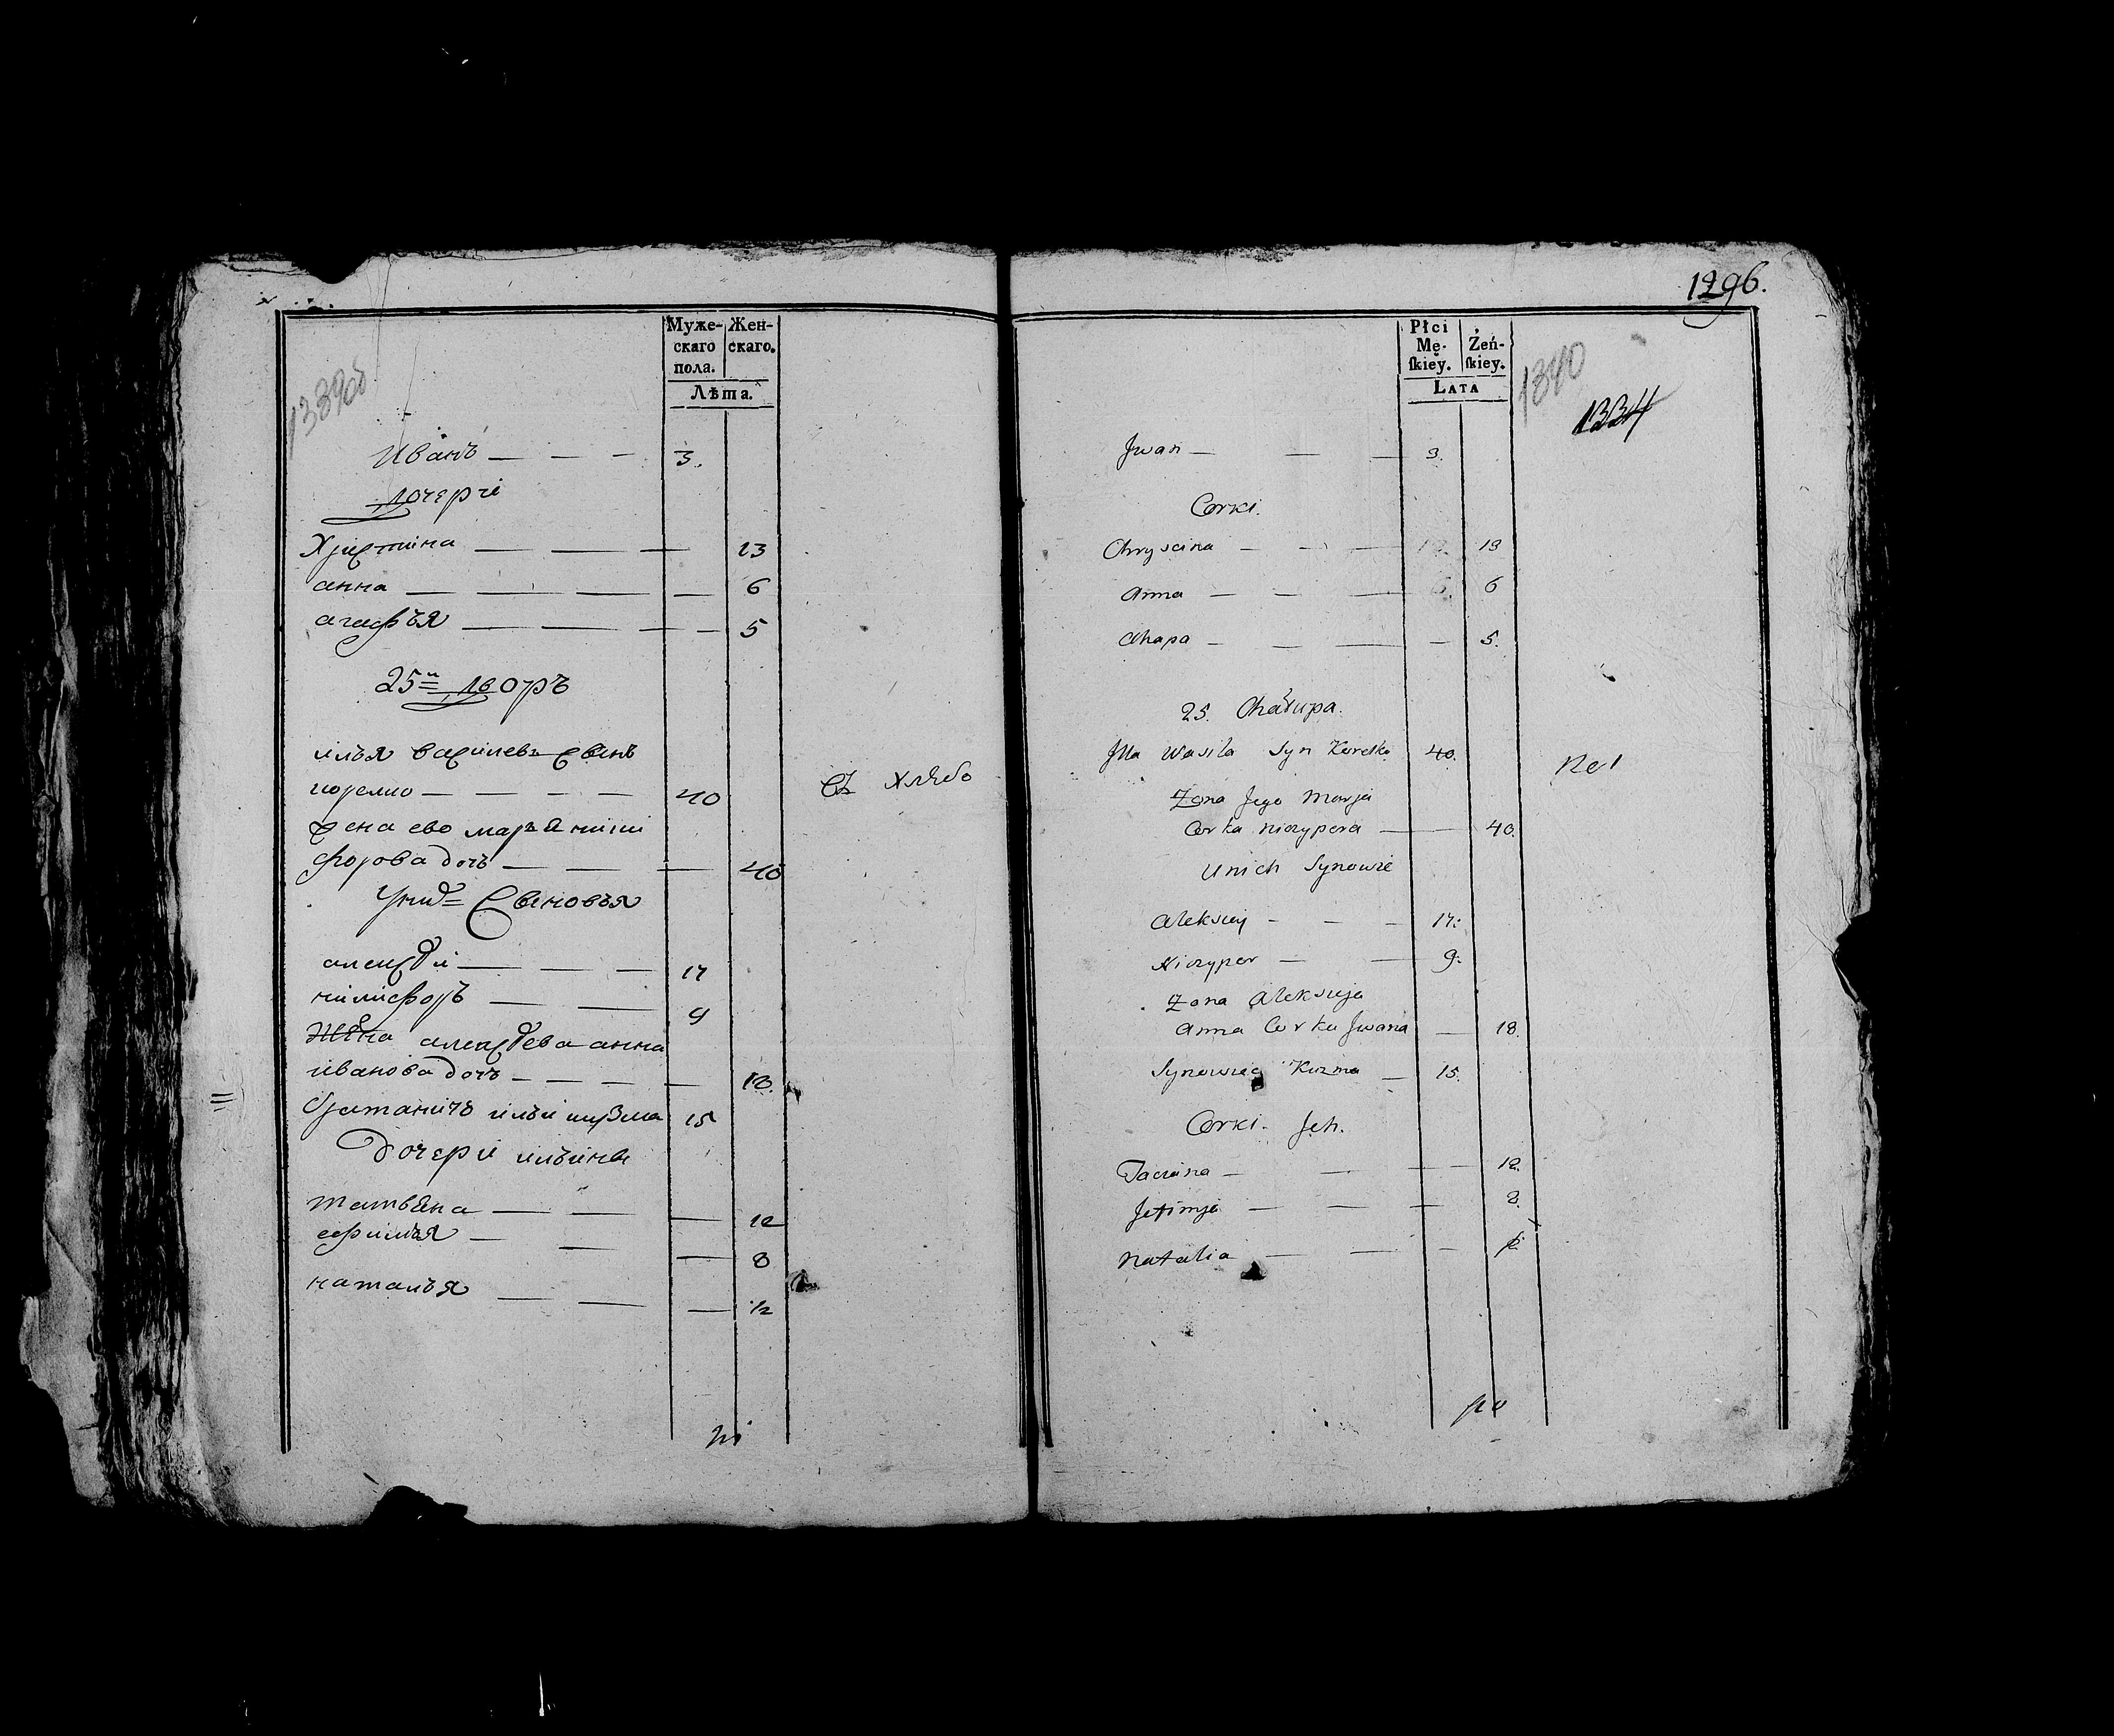 1296.
Муже-
скаго
пола.
Жен-
скаго.
Лѣта.
1339об
Иванъ — — — 3.
дочери
Христина — — — 13
анна — — — — 6
агафья — — — — 5
25й дворъ
илья василевъ сынъ
корелко — — — — 40
жена ево марья ники
форова дочь — — — 40
Уних= Сыновья
алексѣй — — — 17
никифоръ — — 9
Жена алексѣева анна
иванова дочь — — — — 18.
братаничъ ильи кузма 15
Дочери ильины
татьяна — — — 12
ефимья — — — 8
наталья — — — 1/2
Съ хлѣбо
Płci
Mę-
ſkiey.
Żeń-
ſkiey.
Lata
1340
1334
Jwan — — — 3.
Corki.
Chryscina — — — 13
Anna — — — 6
Ahapa — — — — 5.
25. Chałupa.
Jlla Wasila Syn Korelko 40.
Zona Jego Marja
Corka Niczypora — — 40.
Unich Synowie
Aleksiey — — — 17.
Niczypor — — 9.
Zona Aleksieja
Anna Corka Jwana — 18.
Synowiec Kuzma — 15.
Corki Jch.
Taciana — — — — 12.
Jefimja — — — 8.
Natalia — — — 1/2